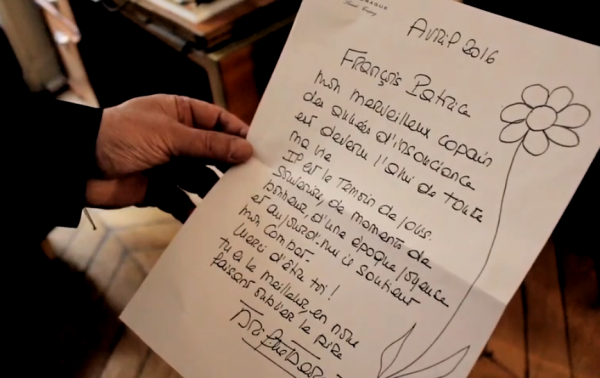 Avril 2016
François Patrice
mon merveilleux copain
des années d'insouciance
est devenu l'ami de toute
ma vie
Il est le témoin de
souvenirs, de moments de
bonheur, d'une époque joyeuse
et aujourd'hui il soutient
mon combat
Merci d'être toi !
tu es le meilleur, en nous
faisant oublier le pire